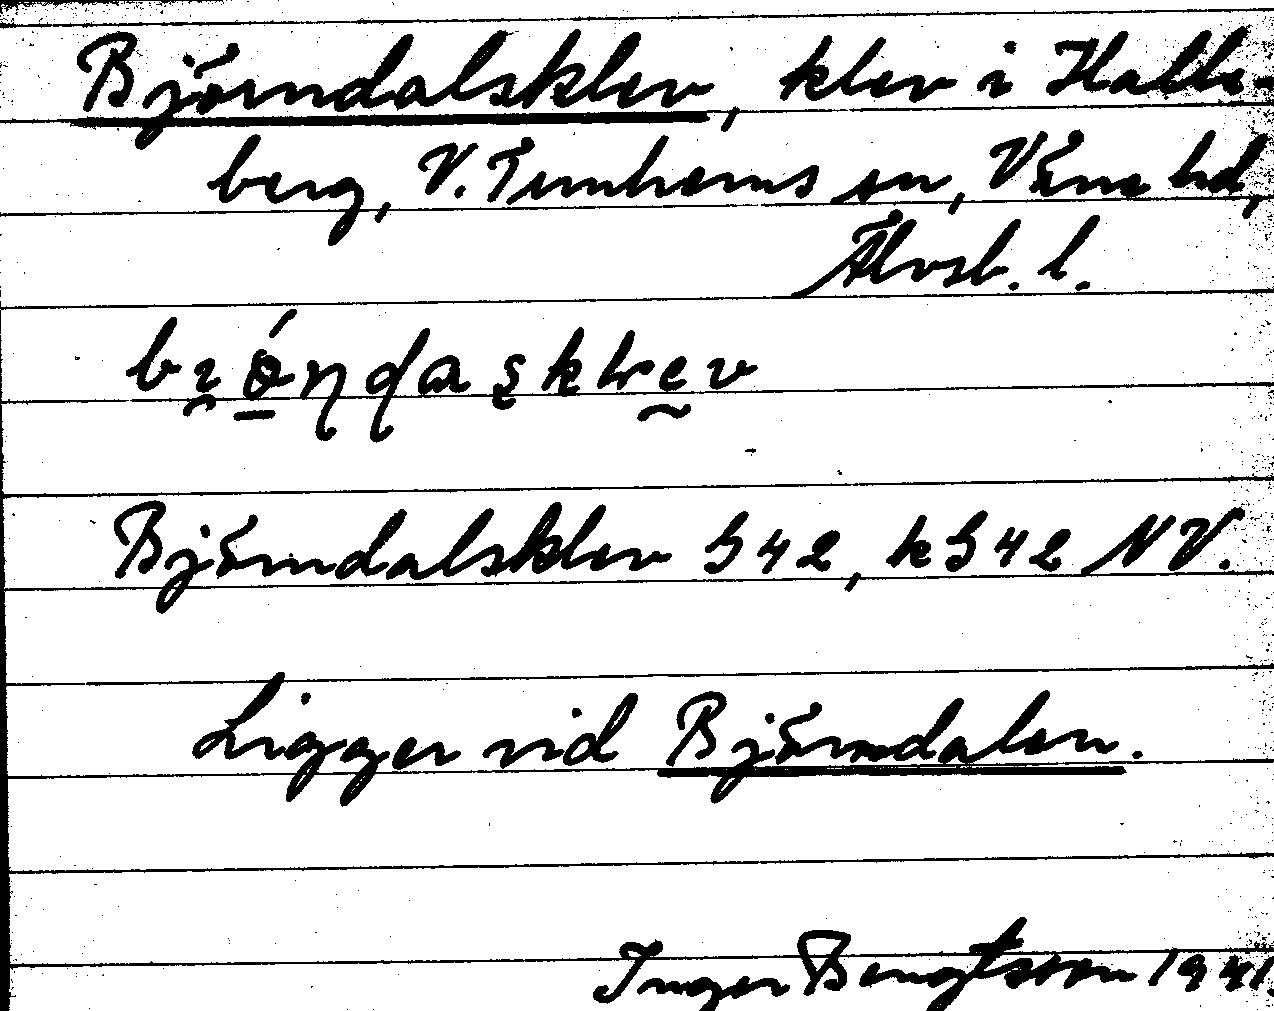 Björndalsklev, klev i Halle-
berg, V. Tunhems sn, Väne hd,
Älvsb. l.
Björndalsklev G42, kG42 NV.
Ligger vid Björndalen.
Inger Bengtsson 1941.